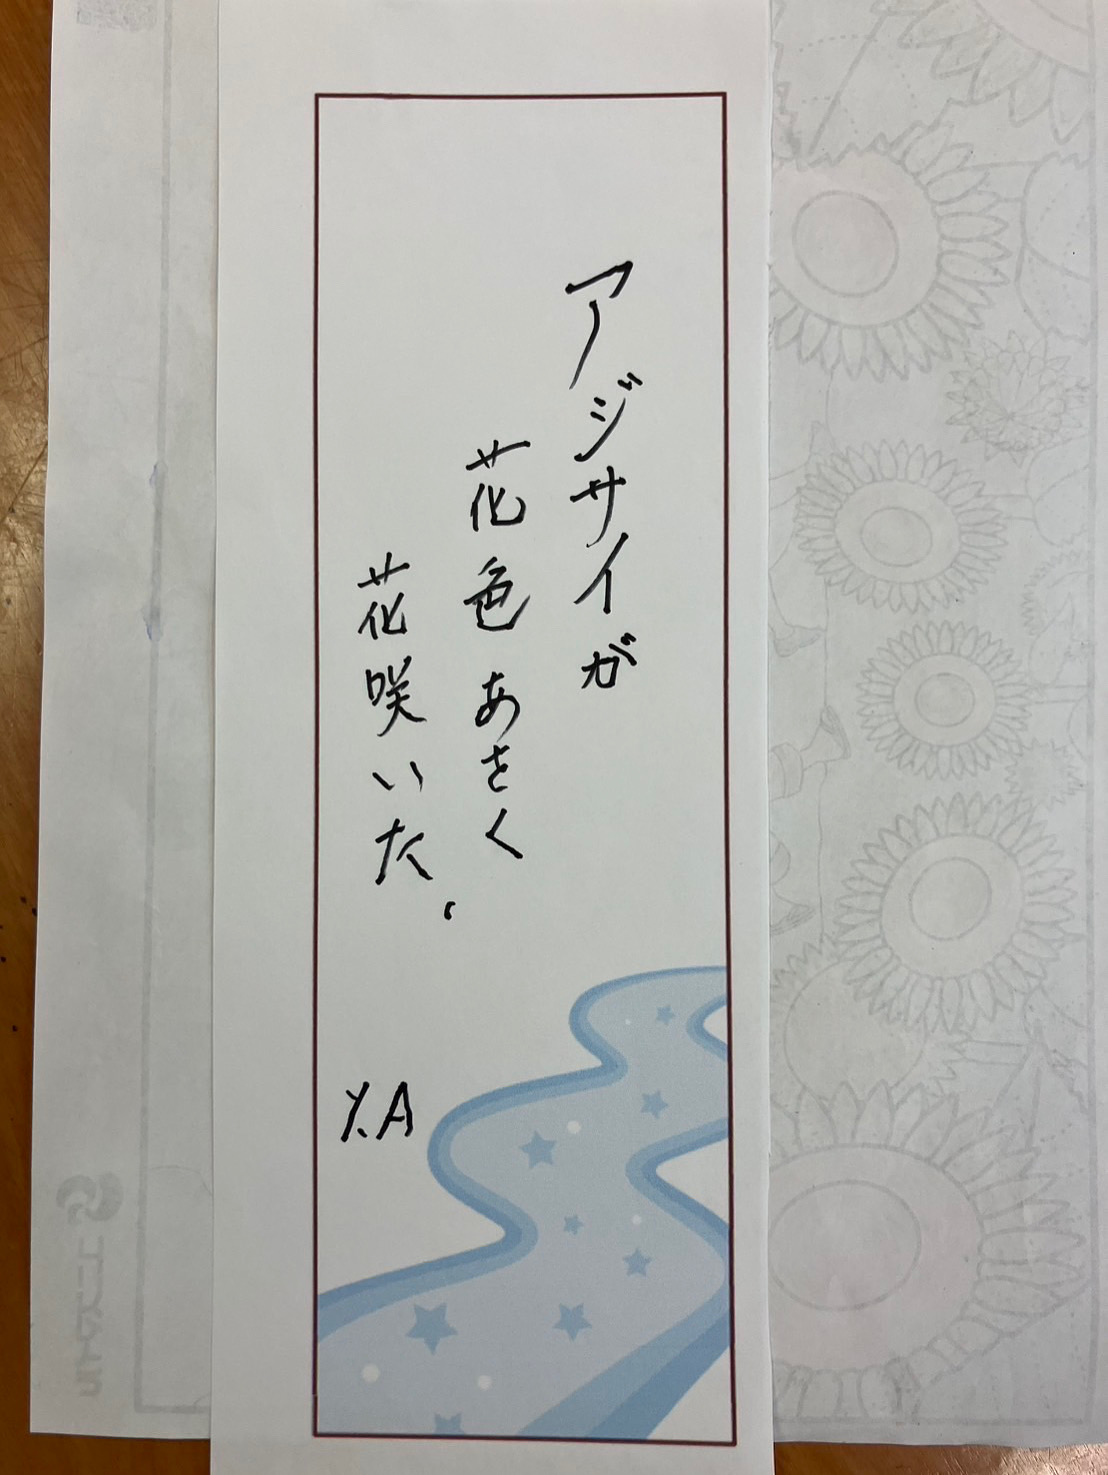 アジサイが
花色あさく
花咲いた.
Y.A